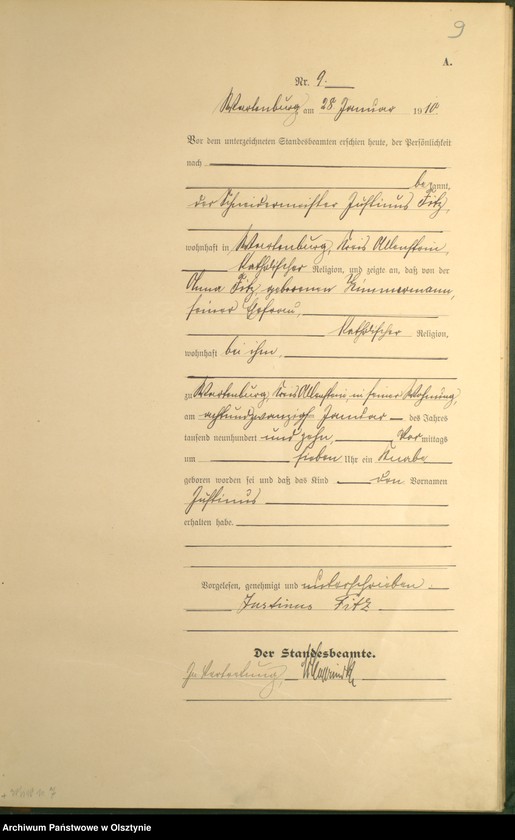 9
A.
Nr. 9.
Wartenburg am 28 Januar 1910.
Vor dem unterzeichneten Standesbeamten erschien heute, der Persönlichkeit
nach
bekannt,
der Schneidermeister Justinus Fitz,
wohnhaft in Wartenburg, Kreis Allenstein,
katholischer Religion, und zeigte an, daß von der
Anna Fitz geborenen Zimmermann,
seiner Ehefrau,
katholischer Religion,
wohnhaft bei ihm,
zu Wartenburg, Kreis Allenstein, in seiner Wohnung,
am achtundzwanzigsten Januar des Jahres
tausend neunhundert und zehn, Vormittags
um sieben Uhr ein Knabe
geboren worden sei und daß das Kind den Vornamen
Justinus
erhalten habe.
Vorgelesen, genehmigt und unterschrieben.
Justinus Fitz
Der Standesbeamte.
In Vertretung,
Archiwum Państwowe w Olsztynie